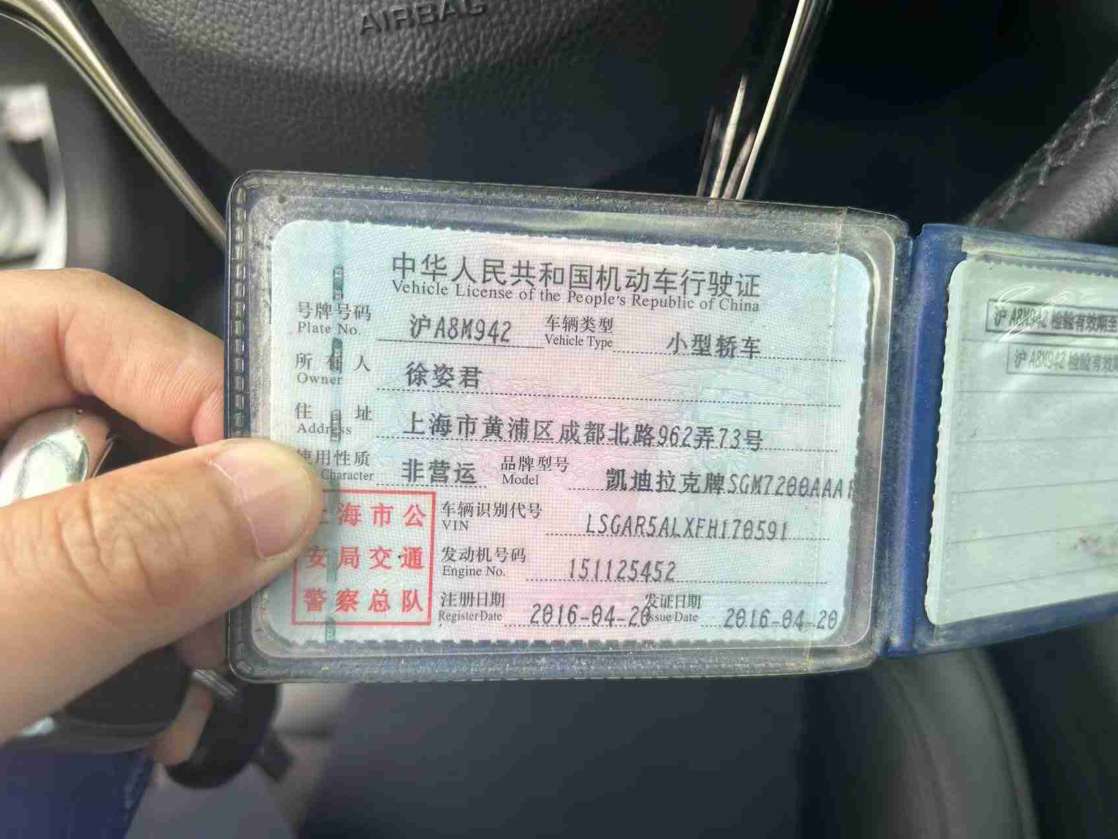 AIRBAG
中华人民共和国机动车行驶证
Vehicle License of the People's Republic of China
号牌号码 沪A8M942 车辆类型 小型轿车
Plate No. Vehicle Type
所有人 徐姿君
Owner
住址 上海市黄浦区成都北路962弄73号
Address
使用性质 非营运 品牌型号 凯迪拉克牌SGM7200AAA
Character Model
海市公
安局交通
警察总队
车辆识别代号 LSGAR5ALXFH170591
VIN
发动机号码 151125452
Engine No.
注册日期 2016-04-20 发证日期 2016-04-20
Register Date Issue Date
沪A8M942 检验有效期
沪A8M942 检验有效